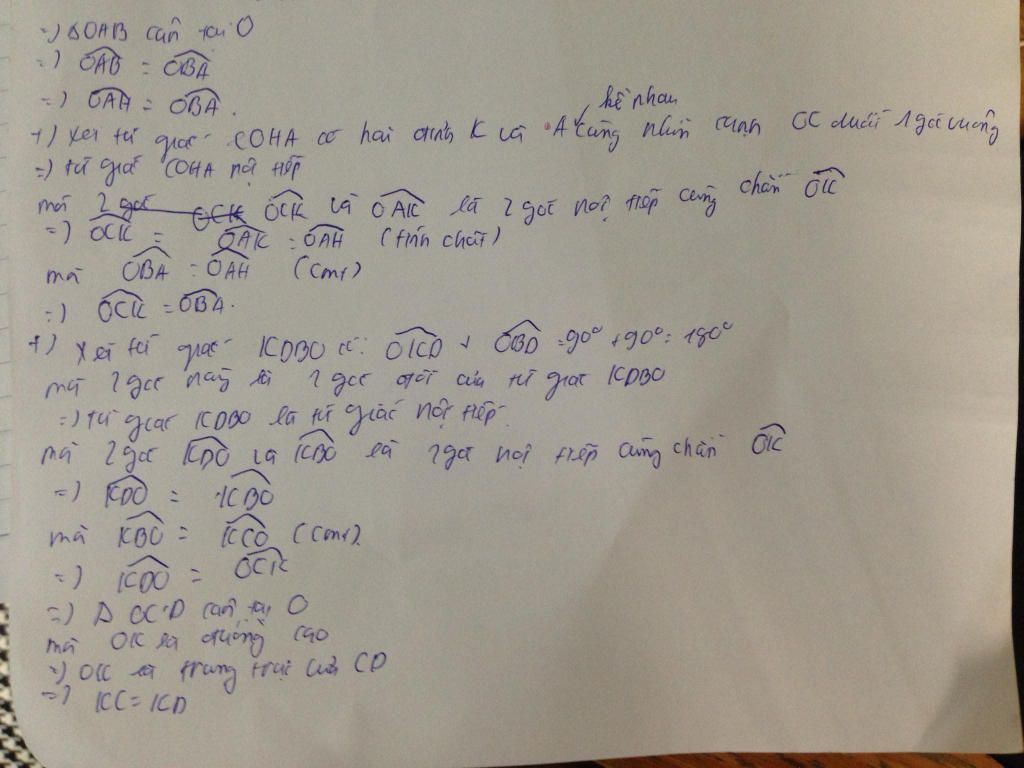 =) ΔOAB cân tại O
=) OAB = OBA
=) OAH = OBA.
kề nhau
+) Xét tứ giác COHA có hai đỉnh K và A cùng nhìn cạnh OC dưới 1 góc vuông
=) tứ giác COHA nội tiếp
mà 2 góc OCK OCK và OAK là 2 góc nội tiếp cùng chắn OK
=) OCK = OAK = OAH (tính chất)
mà OBA = OAH (cmt)
=) OCK = OBA.
+) Xét tứ giác KDBO có: OKD + OBD = 90° + 90° = 180°
mà 2 góc này là 2 góc đối của tứ giác KDBO
=) tứ giác KDBO là tứ giác nội tiếp.
mà 2 góc KDO và KBO là 2 góc nội tiếp cùng chắn OK
=) KDO = KBO
mà KBO = KCO (cmt).
=) KDO = OCK
=) Δ OCD cân tại O
mà OK là đường cao
=) OK là trung trực của CD
=) KC = KD